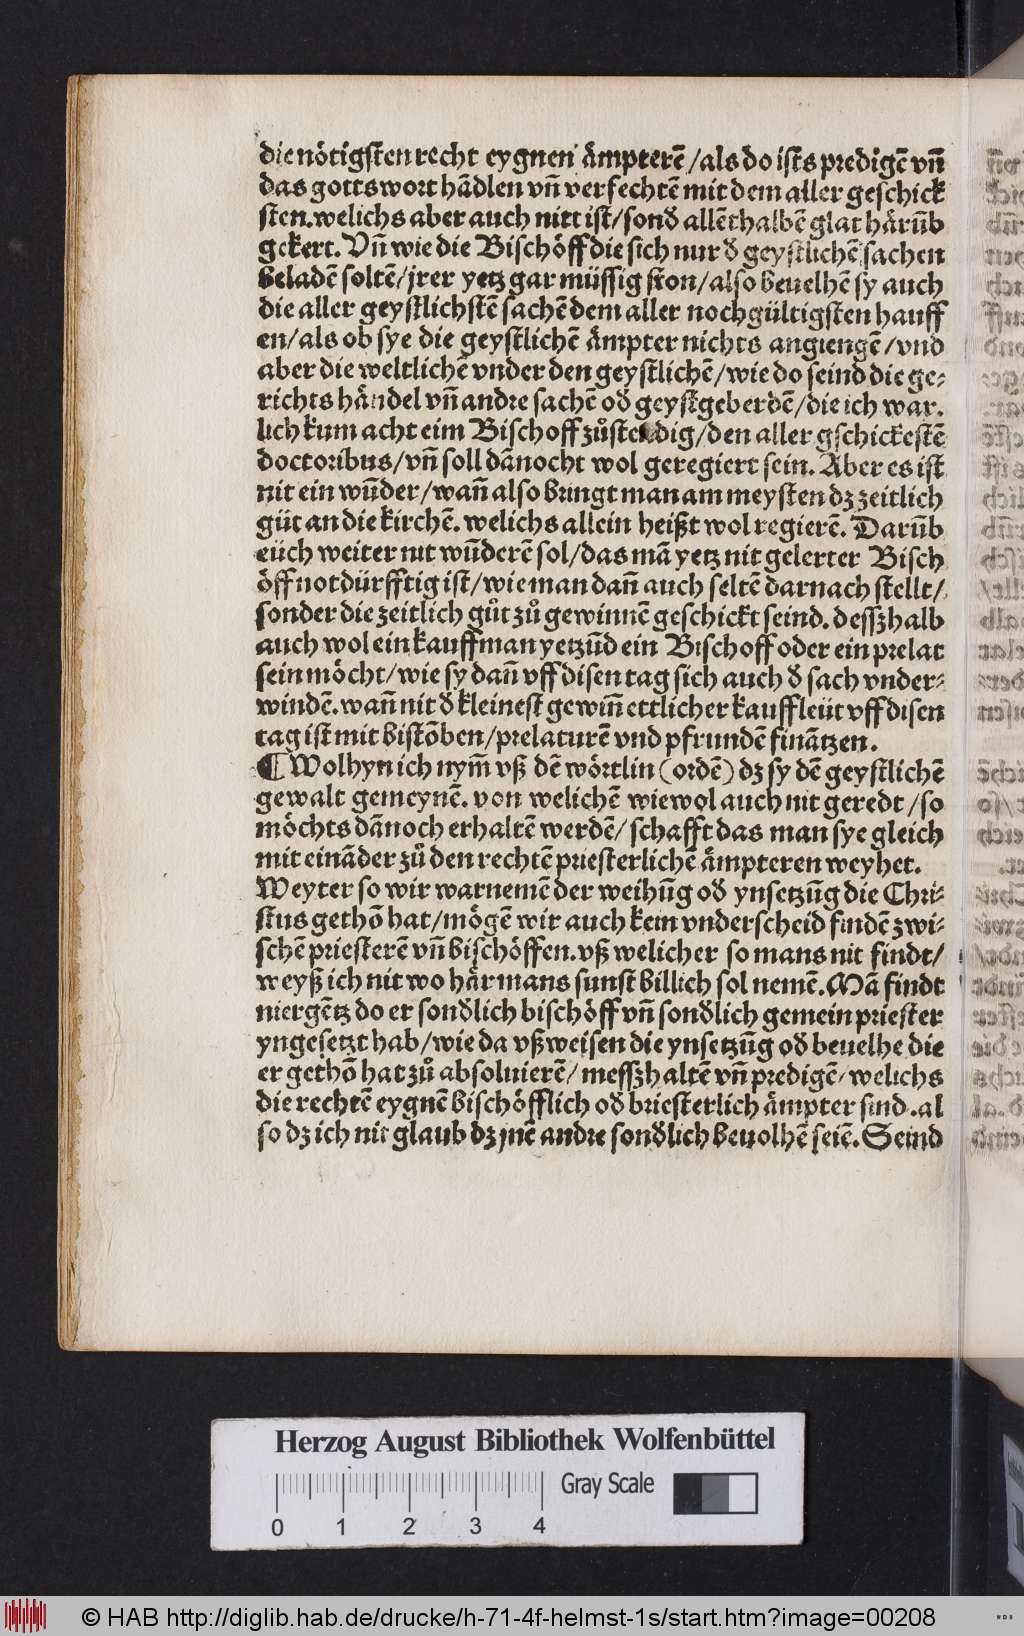 die nötigsten recht eygnen ämpterē /als do ists predigē vñ
das gottswort hādlen vñ verfechtē mit dem aller geschick
sten. welichs aber auch nitt ist/ sonđ allēthalbē glat härūb
gekert. Vñ wie die Bischöff die sich nur đ geystlichē sachen
beladē soltē/ jrer yetz gar müssig ston/ also beuelhē sy auch
die aller geystlichstē sachē dem aller nochgültigsten hauff
en/ als ob sye die geystlichē ämpter nichts angiengē /vnd
aber die weltlichē vnder den geystlichē/ wie do seind die ge⸗
richts händel vñ andre sachē ođ geystgeberdē/ die ich war.
lich kum acht eim Bischoff zůstendig/ den aller gschickestē
doctoribus/ vñ soll dānocht wol geregiert sein. Aber es ist
nit ein wūder/ wañ also bringt man am meysten dz zeitlich
güt an die kirchē. welichs allein heißt wol regierē. Darūb
eüch weiter nit wūderē sol/ das mā yetz nit gelerter Bisch
öff notdürfftig ist/ wie man dañ auch seltē darnach stellt/
sonder die zeitlich gůt zů gewinnē geschickt seind. desszhalb
auch wol ein kauffman yetzūd ein Bischoff oder ein prelat
sein möcht/ wie sy dañ vff disen tag sich auch đ sach vnder⸗
windē. wañ nit đ kleinest gewiñ ettlicher kauffleüt vff disen
tag ist mit bistōben/ prelaturē vnd pfrundē finātzen.
¶ Wolhyn ich nym̄ vß dē wörtlin (ordē) dz sy dē geystlichē
gewalt gemeynē. von welichē wiewol auch nit geredt /so
möchts dānoch erhaltē werdē/ schafft das man sye gleich
mit eināder zů den rechtē priesterlichē ämpteren weyhet.
Weyter so wir warnemē der weihūg ođ ynsetzūg die Chri⸗
stus gethō hat/ mögē wir auch kein vnderscheid findē zwi⸗
schē priesterē vñ bischöffen. vß welicher so mans nit findt/
weyß ich nit wo här mans sunst billich sol nemē. Mā findt
niergētz do er sonđlich bischöff vñ sonđlich gemein priester
yngesetzt hab/ wie da vßweisen die ynsetzūg ođ beuelhe die
er gethō hat zů absoluierē/ messzhaltē vñ predigē/ welichs
die rechtē eygnē bischöfflich ođ briesterlich ämpter sind. al
so dz ich nit glaub dz jnē andre sonđlich beuolhē seiē. Seind
Herzog August Bibliothek Wolfenbüttel
Gray Scale
0 1 2 3 4
© HAB http://diglib.hab.de/drucke/h-71-4f-helmst-1s/start.htm?image=00208